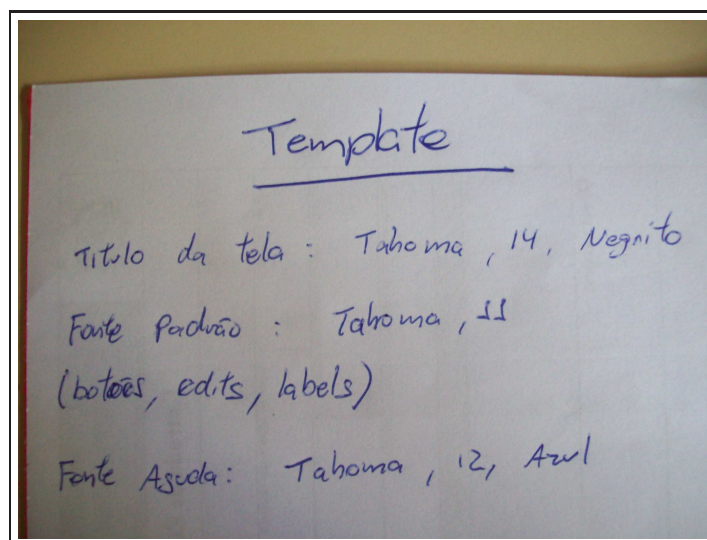 Template
Titulo da tela: Tahoma, 14, Negrito
Fonte Padrão: Tahoma, 11
(botões, edits, labels)
Fonte Aguda: Tahoma, 12, Azul